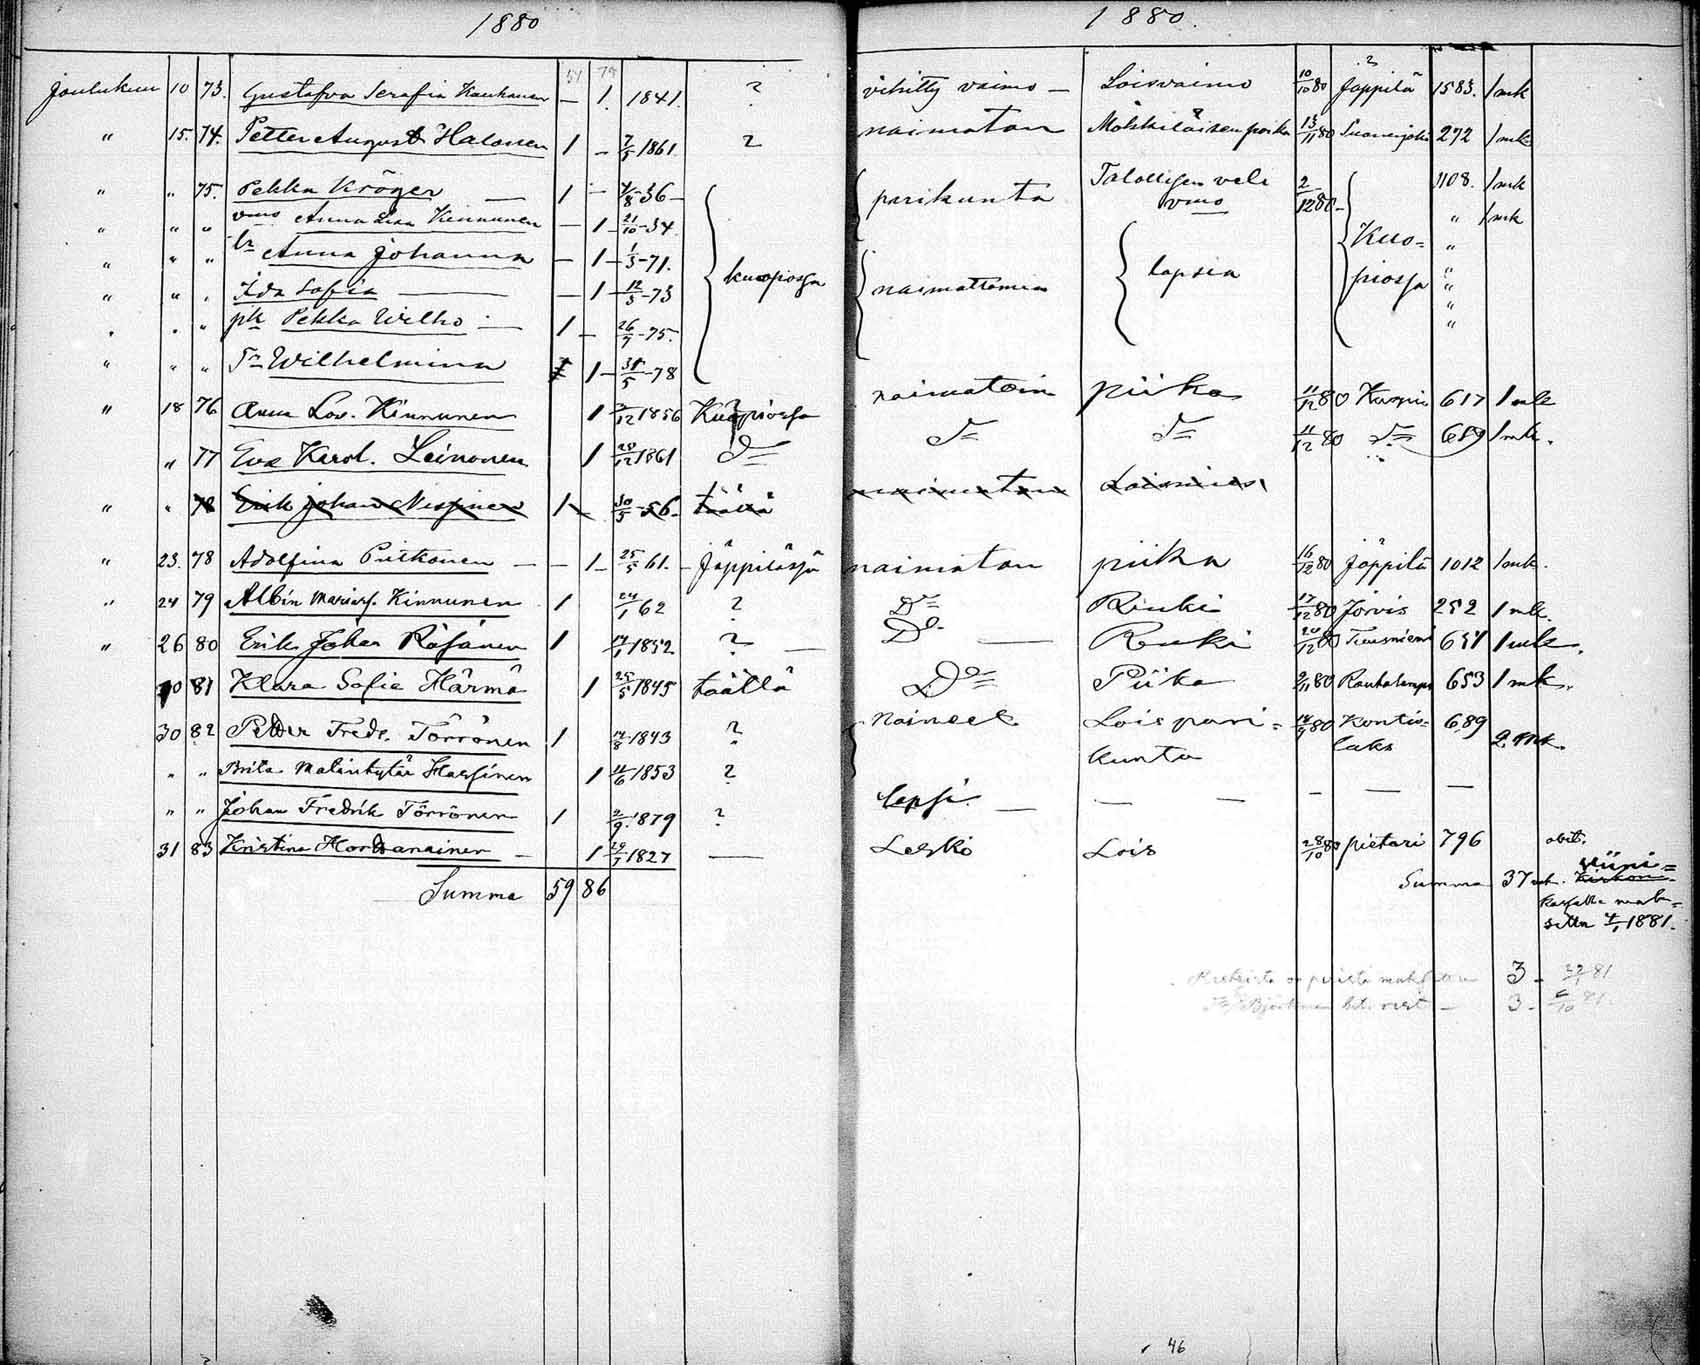 1880
1880.
51 78
Joulukuu 10 73. Gustafva Serafia Kauhanen — 1. 1841. ? vihitty vaimo — Loisvaimo 10/10 80 Jäppilä 1583. 1 mk
" 15. 74. Petter August Halonen 1 — 7/5 1861. ? naimaton Mökkiläisen poika 13/11 80 Suonenjoki 272 1 mk
" " 75. Pekka Kröger — 1 — 4/8 -36 — pariskunta Talollisen veli 2/12 80 — 1108. 1 mk
" " " vmo Anna Liisa Kinnunen — 1 — 21/10 -34. vmo " 1 mk
" " " tr Anna Johanna — 1 — 1/5 -71. Kuo= "
" " " Ida Sofia — — 1 — 12/5 -73 kuopiossa naimattomia lapsia piossa "
" " " pk Pekka Wilho — 1 — 26/7 -75. "
" " " Tr Wilhelmina 1 — 31/5 -78 "
" 18 76 Anna Lov. Kinnunen 1 /12 1856 Kuopiossa naimatoin piika 11/12 80 Kuopio 617 1 mk
" 77 Eva Karol. Leinonen 1 28/12 1861 D= D= D= 11/12 80 D= 689 1 mk.
" " 78 Erik Johan Nissinen 1 — 30/5 -56. täällä naimaton Loismies
" 23. 78 Adolfina Pitkonen — — 1 — 25/5 61. — Jäppilässä naimaton piika 16/12 80 Jäppilä 1012 1 mk.
" 24 79 Albin Mariasf. Kinnunen 1 24/1 62 ? D= Renki 17/12 80 Jorois 252 1 mk.
" 26 80 Erik Johan Räsänen 1 17/1 1852 ? — Do — Renki 20/12 80 Tuusniemi 651 1 mk.
30 81 Klara Sofia Härmä 1 25/5 1845 täällä Do= Piika 2/11 80 Rautalampi 653 1 mk.
30 82 Petter Fredr. Törrönen 1 17/8 1843 ? Naineet Loispari= 14/9 80 Kontio= 689
laks 2 mk.
" " Brita Matintytär Hassinen 1 11/6 1853 ? kunta
" " Johan Fredrik Törrönen 1 2/9 1879 ? lapsi — — — — — —
31 83 Kristina Hordanainen — 1 29/7 1827 — Leski Lois 28/10 80 pietari 796
Summa 59 86
Summa 37 mk.
viini=
Kirkon
kassalle mak=
settu 4/1 1881.
3 — 22/1 81
3 — 6/10 81.
46